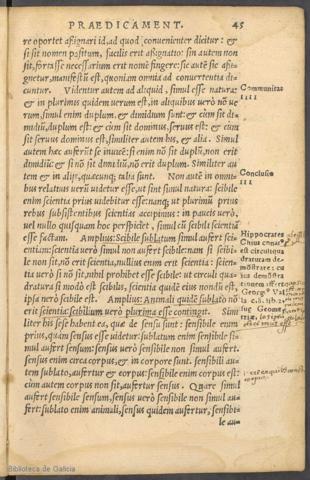 PRAEDICAMENT. 45
re oportet assignari id, ad quod convenienter dicitur: &
si sit nomen positum, facilis erit assignatio: sin autem non
sit, fortasse necessarium erit nomē fingere: se autē sic assi-
gnetur, manifestū est, quoniam omnia ad convertentia di-
cuntur. Videntur autem ad aliquid, simul esse natura:
Communitas
IIII
& in plurimis quidem verum est, in aliquibus verò nō ve
rum, simul enim duplum, & dimidium sunt: & cùm sit di-
midiū, duplum est: & cùm sit dominus, servus est: & cùm
sit servus dominus est, similiter autem his, & alia. Simul
autem hæc auferūt se invicē: si enim nō sit duplū, non erit
dimidiū: & si nō sit dimidiū, nō erit duplum. Similiter au
tem & in alijs, quæcunq; talia sunt. Non autē in omni-
Conclusio
III
bus relativis verū videtur esse, ut sint simul natura: scibile
enim scientia prius videbitur esse: nanq; ut plurimū prius
rebus subsistentibus scientias accipimus: in paucis verò,
vel nullo quisquam hoc perspiciet, simul cū scibili scientiā
esse factam. Amplius: Scibile sublatum simul aufert sci-
entiam: scientia verò simul non aufert scibile: nam si scibi-
le non sit, nō erit scientia, nullius enim erit scientia: scien-
tia verò si nō sit, nihil prohibet esse scibile: ut circuli qua-
dratura si modò est scibilis, scientia quidē eius nondū est,
ipsa verò scibile est. Amplius: Animali quidē sublato nō
erit scientia: scibilium verò plurima esse contingit. Simi
liter his sese habent ea, quæ de sensu sunt: sensibile enim
prius, quàm sensus esse videtur: sublatum enim sensibile si-
mul aufert sensum: sensus verò sensibile non simul aufert.
sensus enim circa corpus, & in corpore sunt. sensibili au
tem sublato, aufertur & corpus: sensibile enim corpus est:
cùm autem corpus non sit, aufertur sensus. Quare simul
aufert sensibile sensum, sensus verò sensibile non simul au-
fert: sublato enim animali, sensus quidem aufertur, sensibi-
le au-
Hippocrates
Chius conat⁹
est circuitione
quadraturam de-
mōstrare: cu
ius demōstra
tionem affert
Georg⁹ Val
la ca. 2. lib. 2.
suę Geome-
triæ.
Biblioteca de Galicia